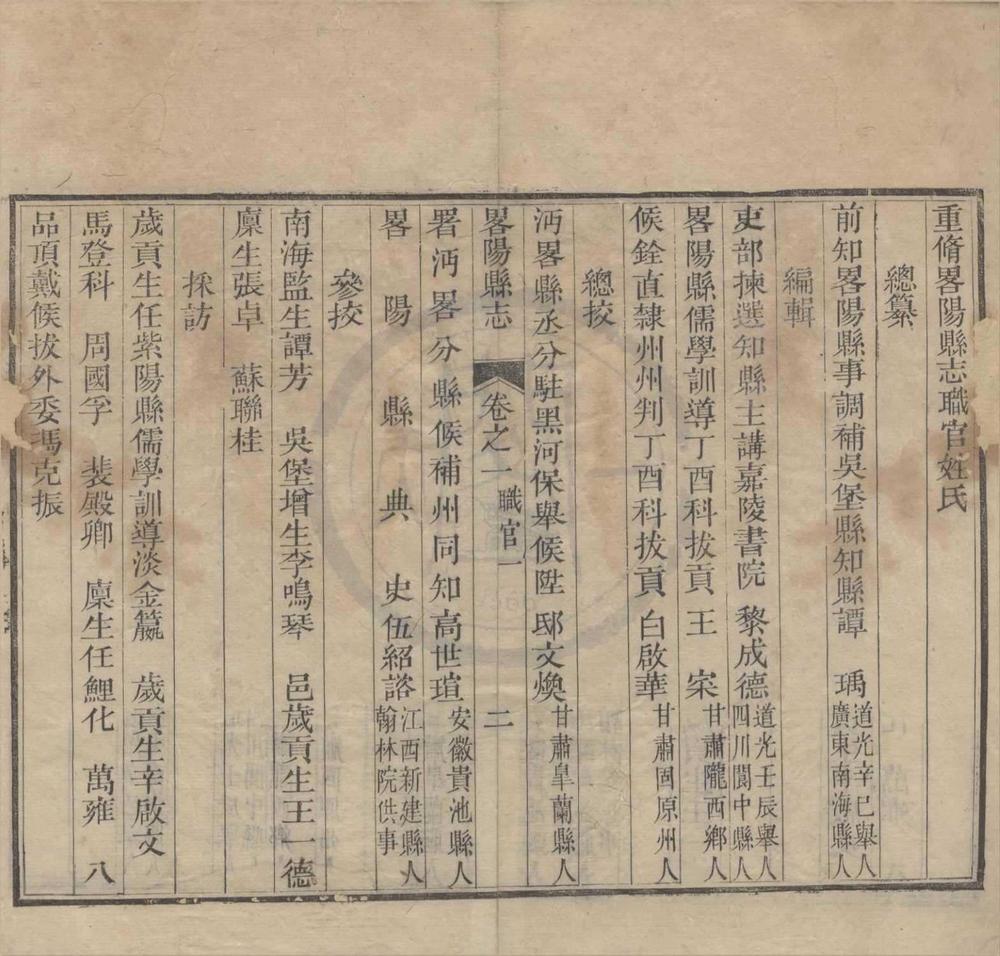 重脩畧陽縣志職官姓氏
總纂
前知畧陽縣事調補吳堡縣知縣譚 瑀 道光辛巳舉人 廣東南海縣人
編輯
吏部揀選知縣主講嘉陵書院 黎成德 道光壬辰舉人 四川閬中縣人
畧陽縣儒學訓導丁酉科拔貢 王 寀 甘肅隴西鄉人
候銓直隸州州判丁酉科拔貢 白啟華 甘肅固原州人
總挍
沔畧縣丞分駐黑河保舉候陞 邸文煥 甘肅臯蘭縣人
畧陽縣志 卷之一 職官一 二
署沔畧分縣候補州同知高世瑄 安徽貴池縣人
畧陽縣典史伍紹詻 江西新建縣人 翰林院供事
參挍
南海監生譚芳 吳堡增生李鳴琴 邑歲貢生王一德
廩生張卓 蘇聯桂
採訪
歲貢生任紫陽縣儒學訓導淡金籯 歲貢生辛啟文
馬登科 周國孚 裴殿卿 廩生任鯉化 萬雍 八
品頂戴候拔外委馮克振